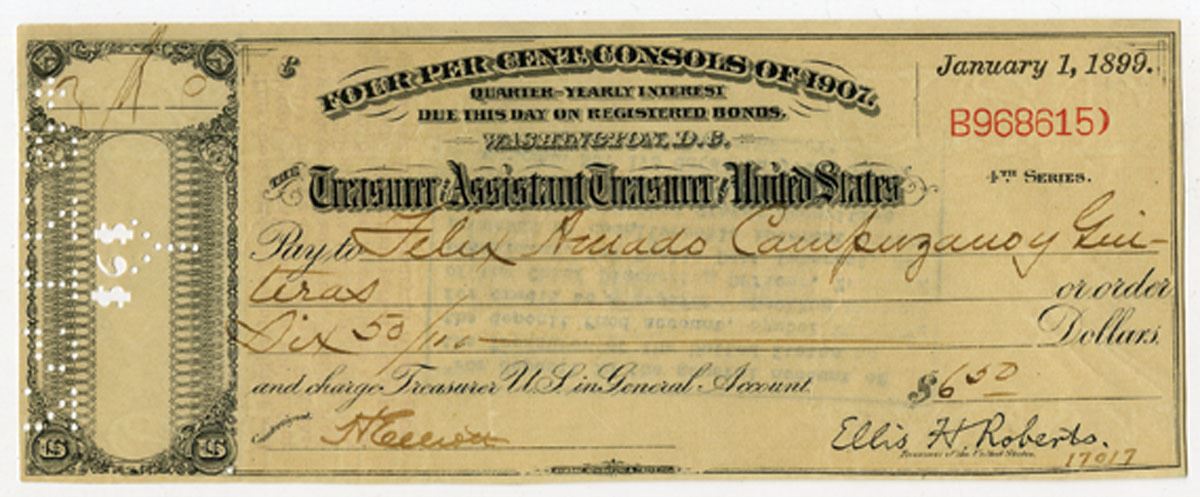 FOUR PER CENT. CONSOLS OF 1907.
January 1, 1899.
QUARTER-YEARLY INTEREST
DUE THIS DAY ON REGISTERED BONDS.
B968615)
WASHINGTON, D.C.
4TH SERIES.
THE Treasurer or Assistant Treasurer of the United States
Pay to Felix Amado Campuzano y Gui-
teras or order
Six 50/100 Dollars.
and charge Treasurer U.S. in General Account. $6 50
Countersigned,
Ellis H. Roberts.
Treasurer of the United States.
17017
$6$